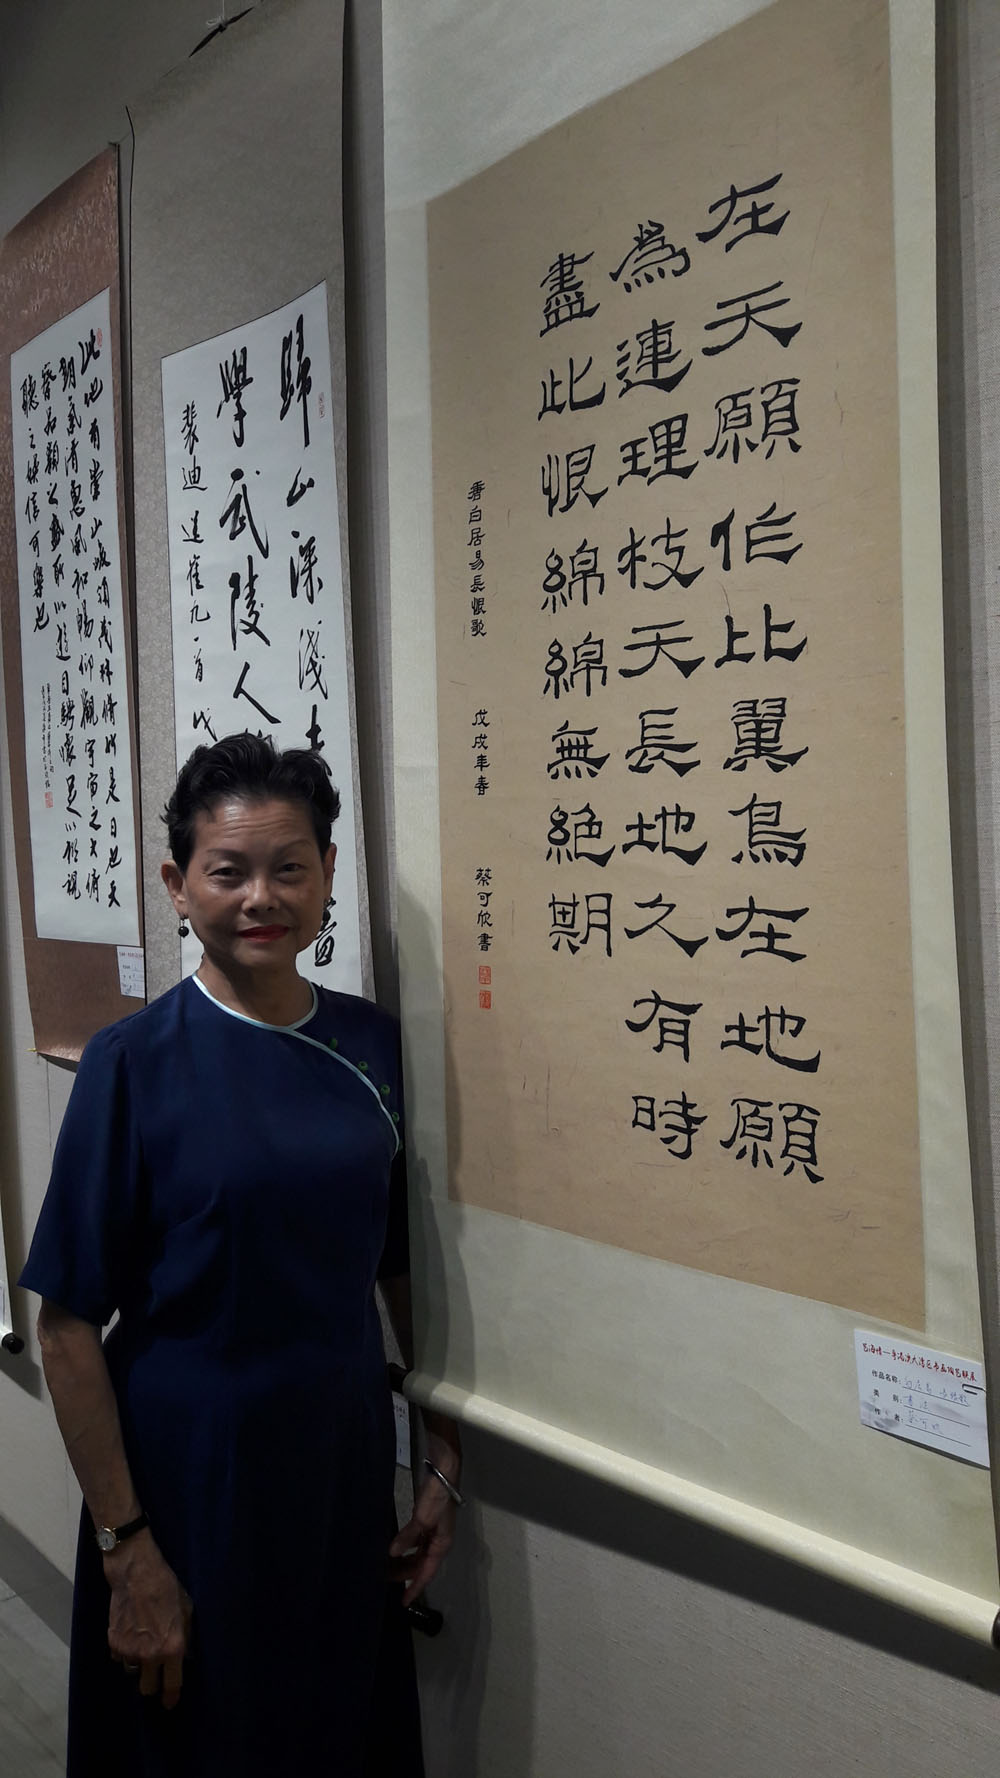 在天願作比翼鳥在地願
為連理枝天長地久有時
盡此恨綿綿無絕期
唐白居易長恨歌 戊戌年春 蔡可欣書
藝海情一粵港澳大灣區書画陶藝联展
作品名称：白居易 長恨歌
类 别：書法
作 者：蔡可欣
歸山深淺去
學武陵人
裴迪送崔九一首 戊
此地有崇山峻領茂林脩竹是日也天
朗氣清惠風和暢仰觀宇宙之大俯
察品類之盛所以遊目騁懷足以極視
聽之娛信可樂也